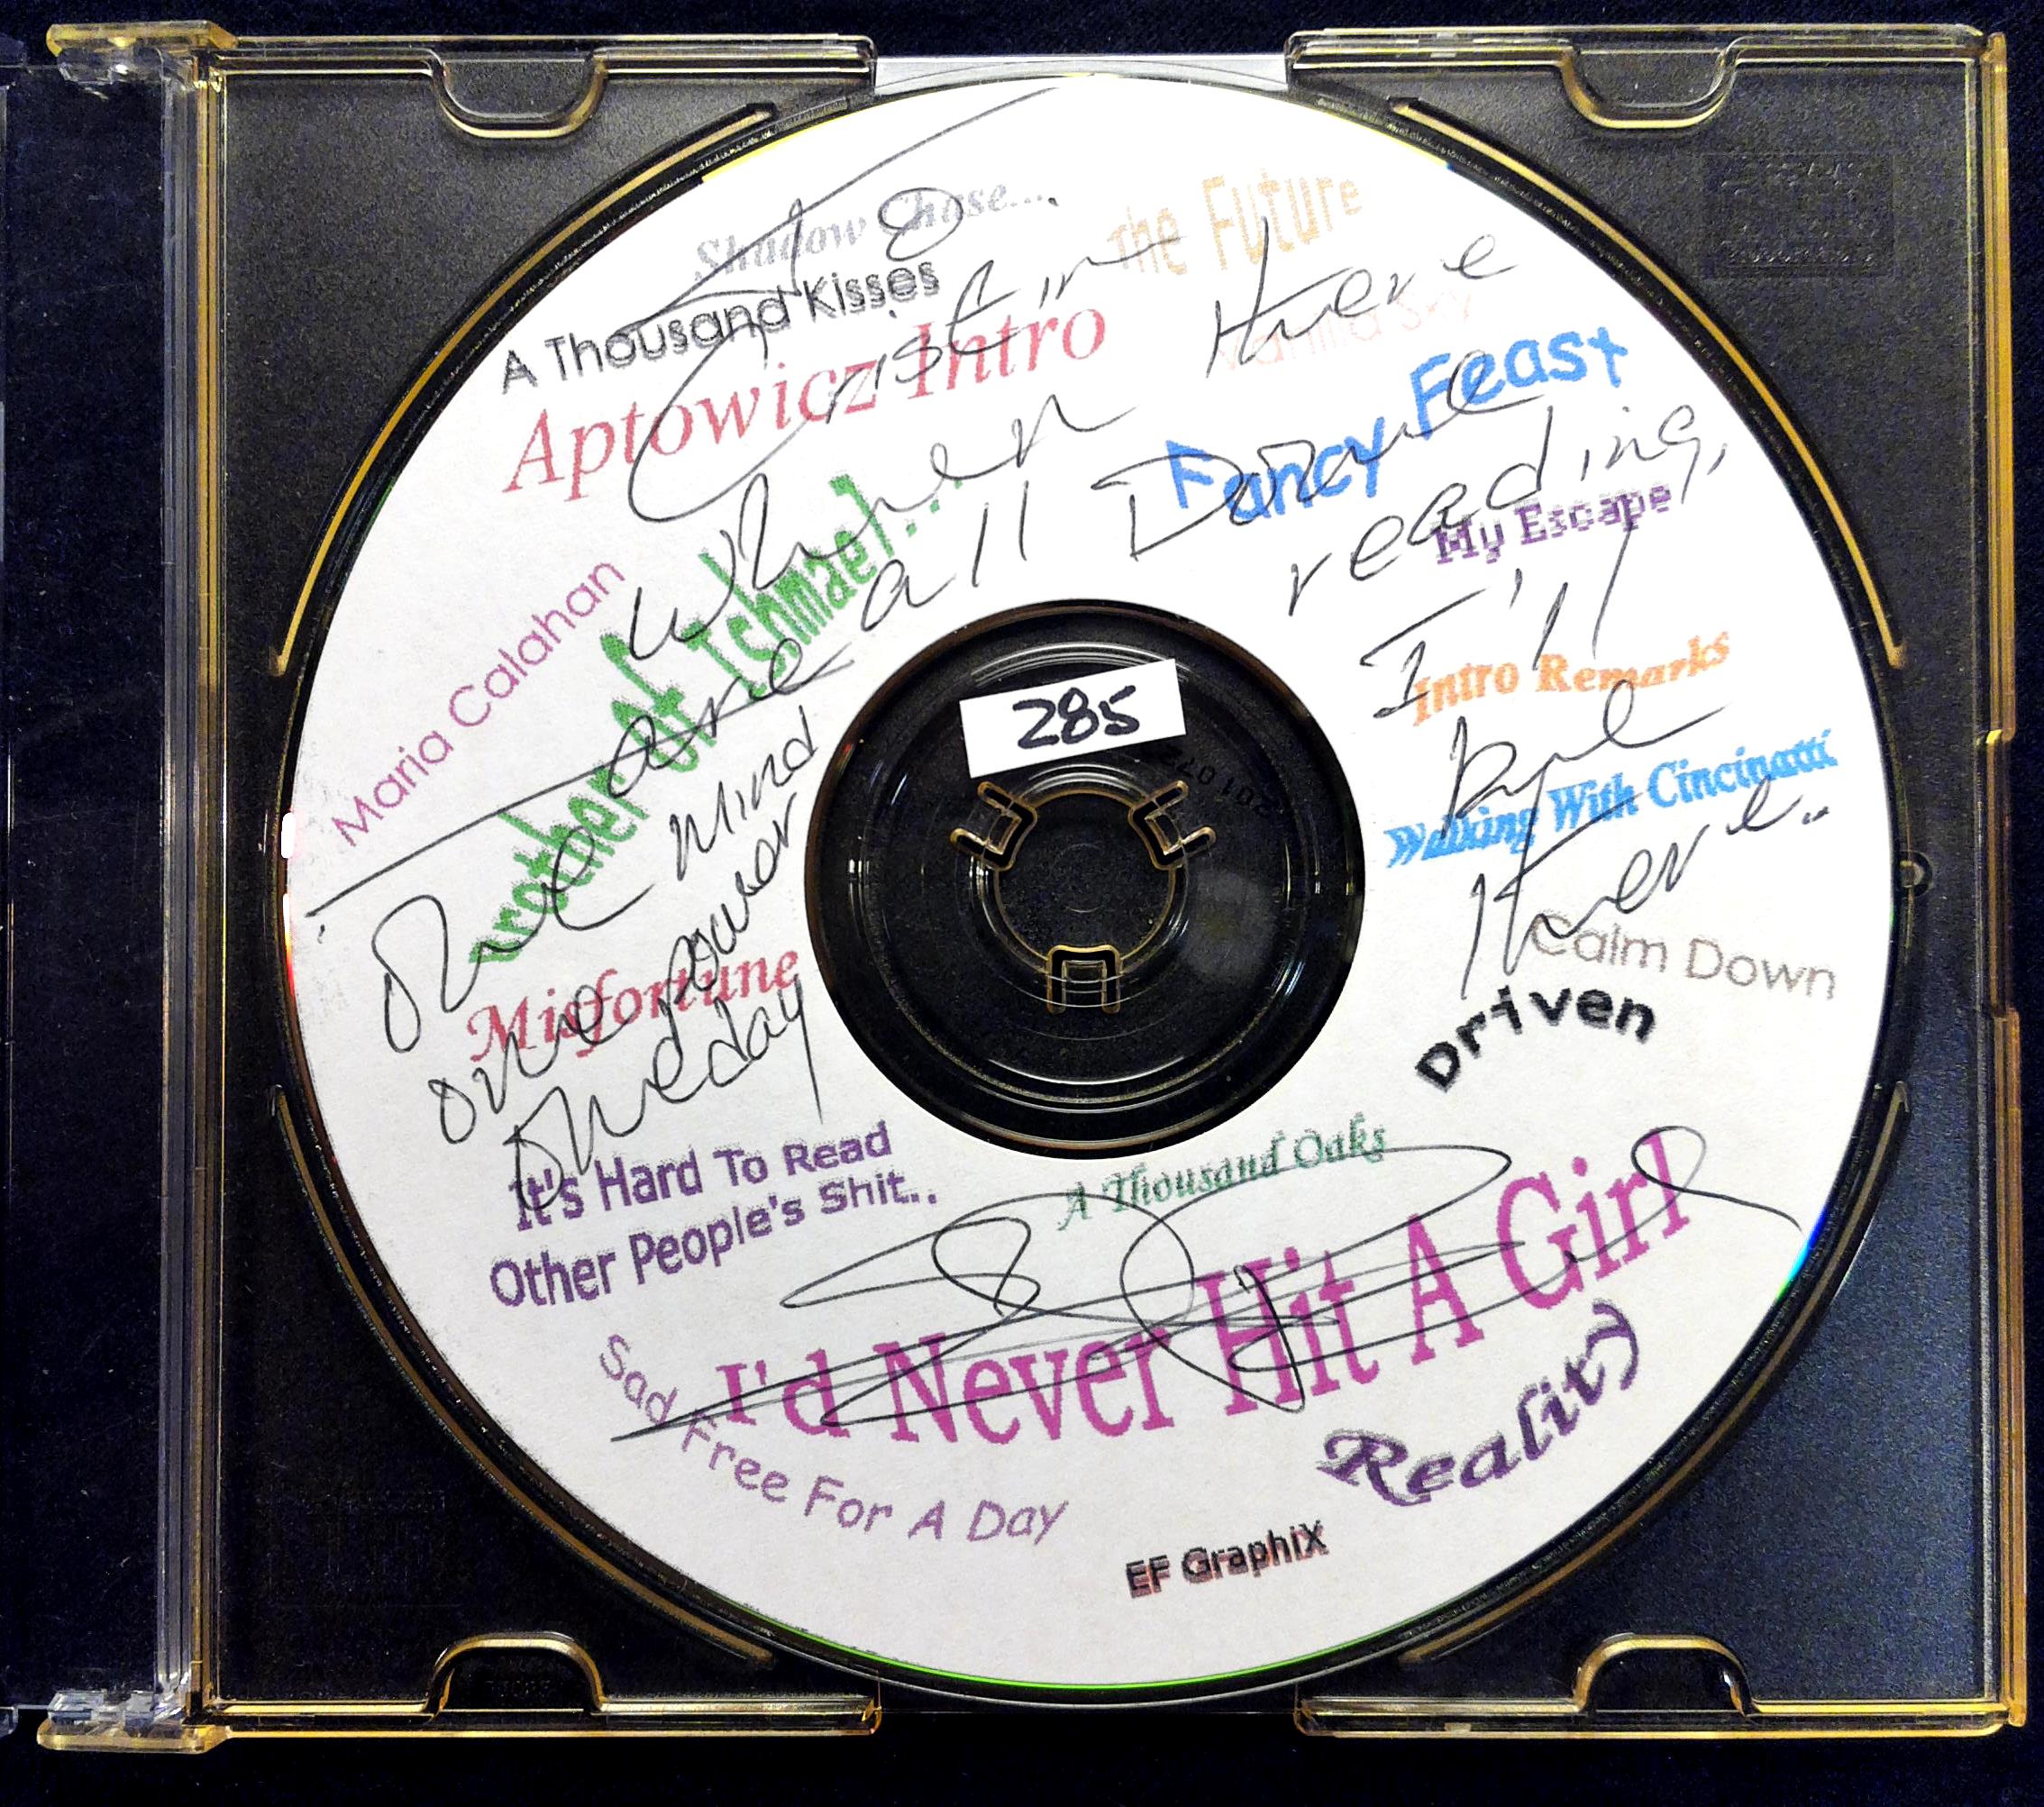 Shadow Chase...
The Future
A Thousand Kisses
Aptowicz Intro
Vanilla Sky
Fancy Feast
My Escape
Maria Calahan
Brother of Ishmael...
Intro Remarks
Walking With Cincinatti
Misfortune
Calm Down
Driven
It's Hard To Read
Other People's Shit..
A Thousand Oaks
I'd Never Hit A Girl
Sad Free For A Day
Reality
EF GraphiX
285
To
Cristin
When There
are all Done
reading,
I'll
bye
There..
One Mind
one power
One day